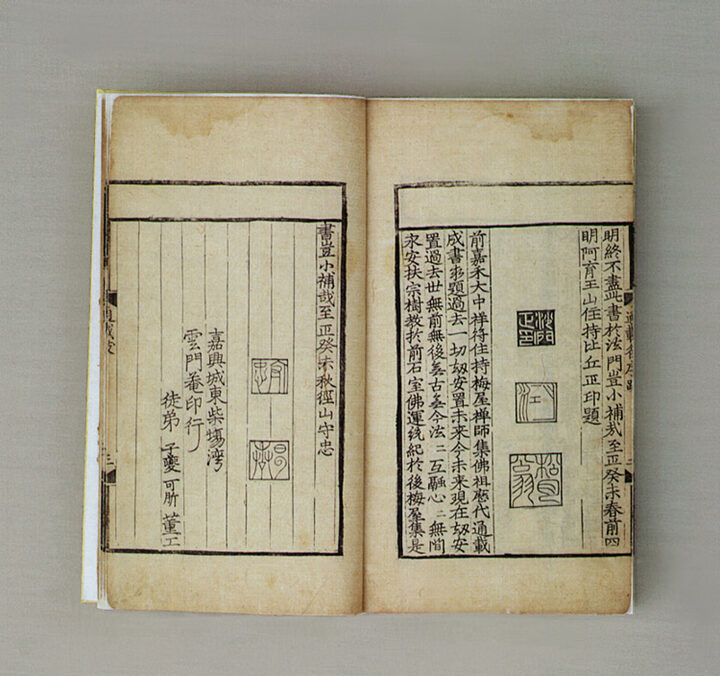 明終不盡此書於法門豈小補哉至正癸未春前四
明阿育王山住持比丘正印題
前嘉禾大中祥符住持梅屋禅師集佛祖厯代通載
成書求題過去一切刼安置未来今未来現在刼安
置過去世無前無後無古無今法二互融心二無間
永安扶宗樹教於前石室佛運統紀於後梅屋集是
書豈小補哉至正癸未秋徑山守忠
嘉興城東柴塲灣
雲門菴印行
徒弟 子 可所 董工